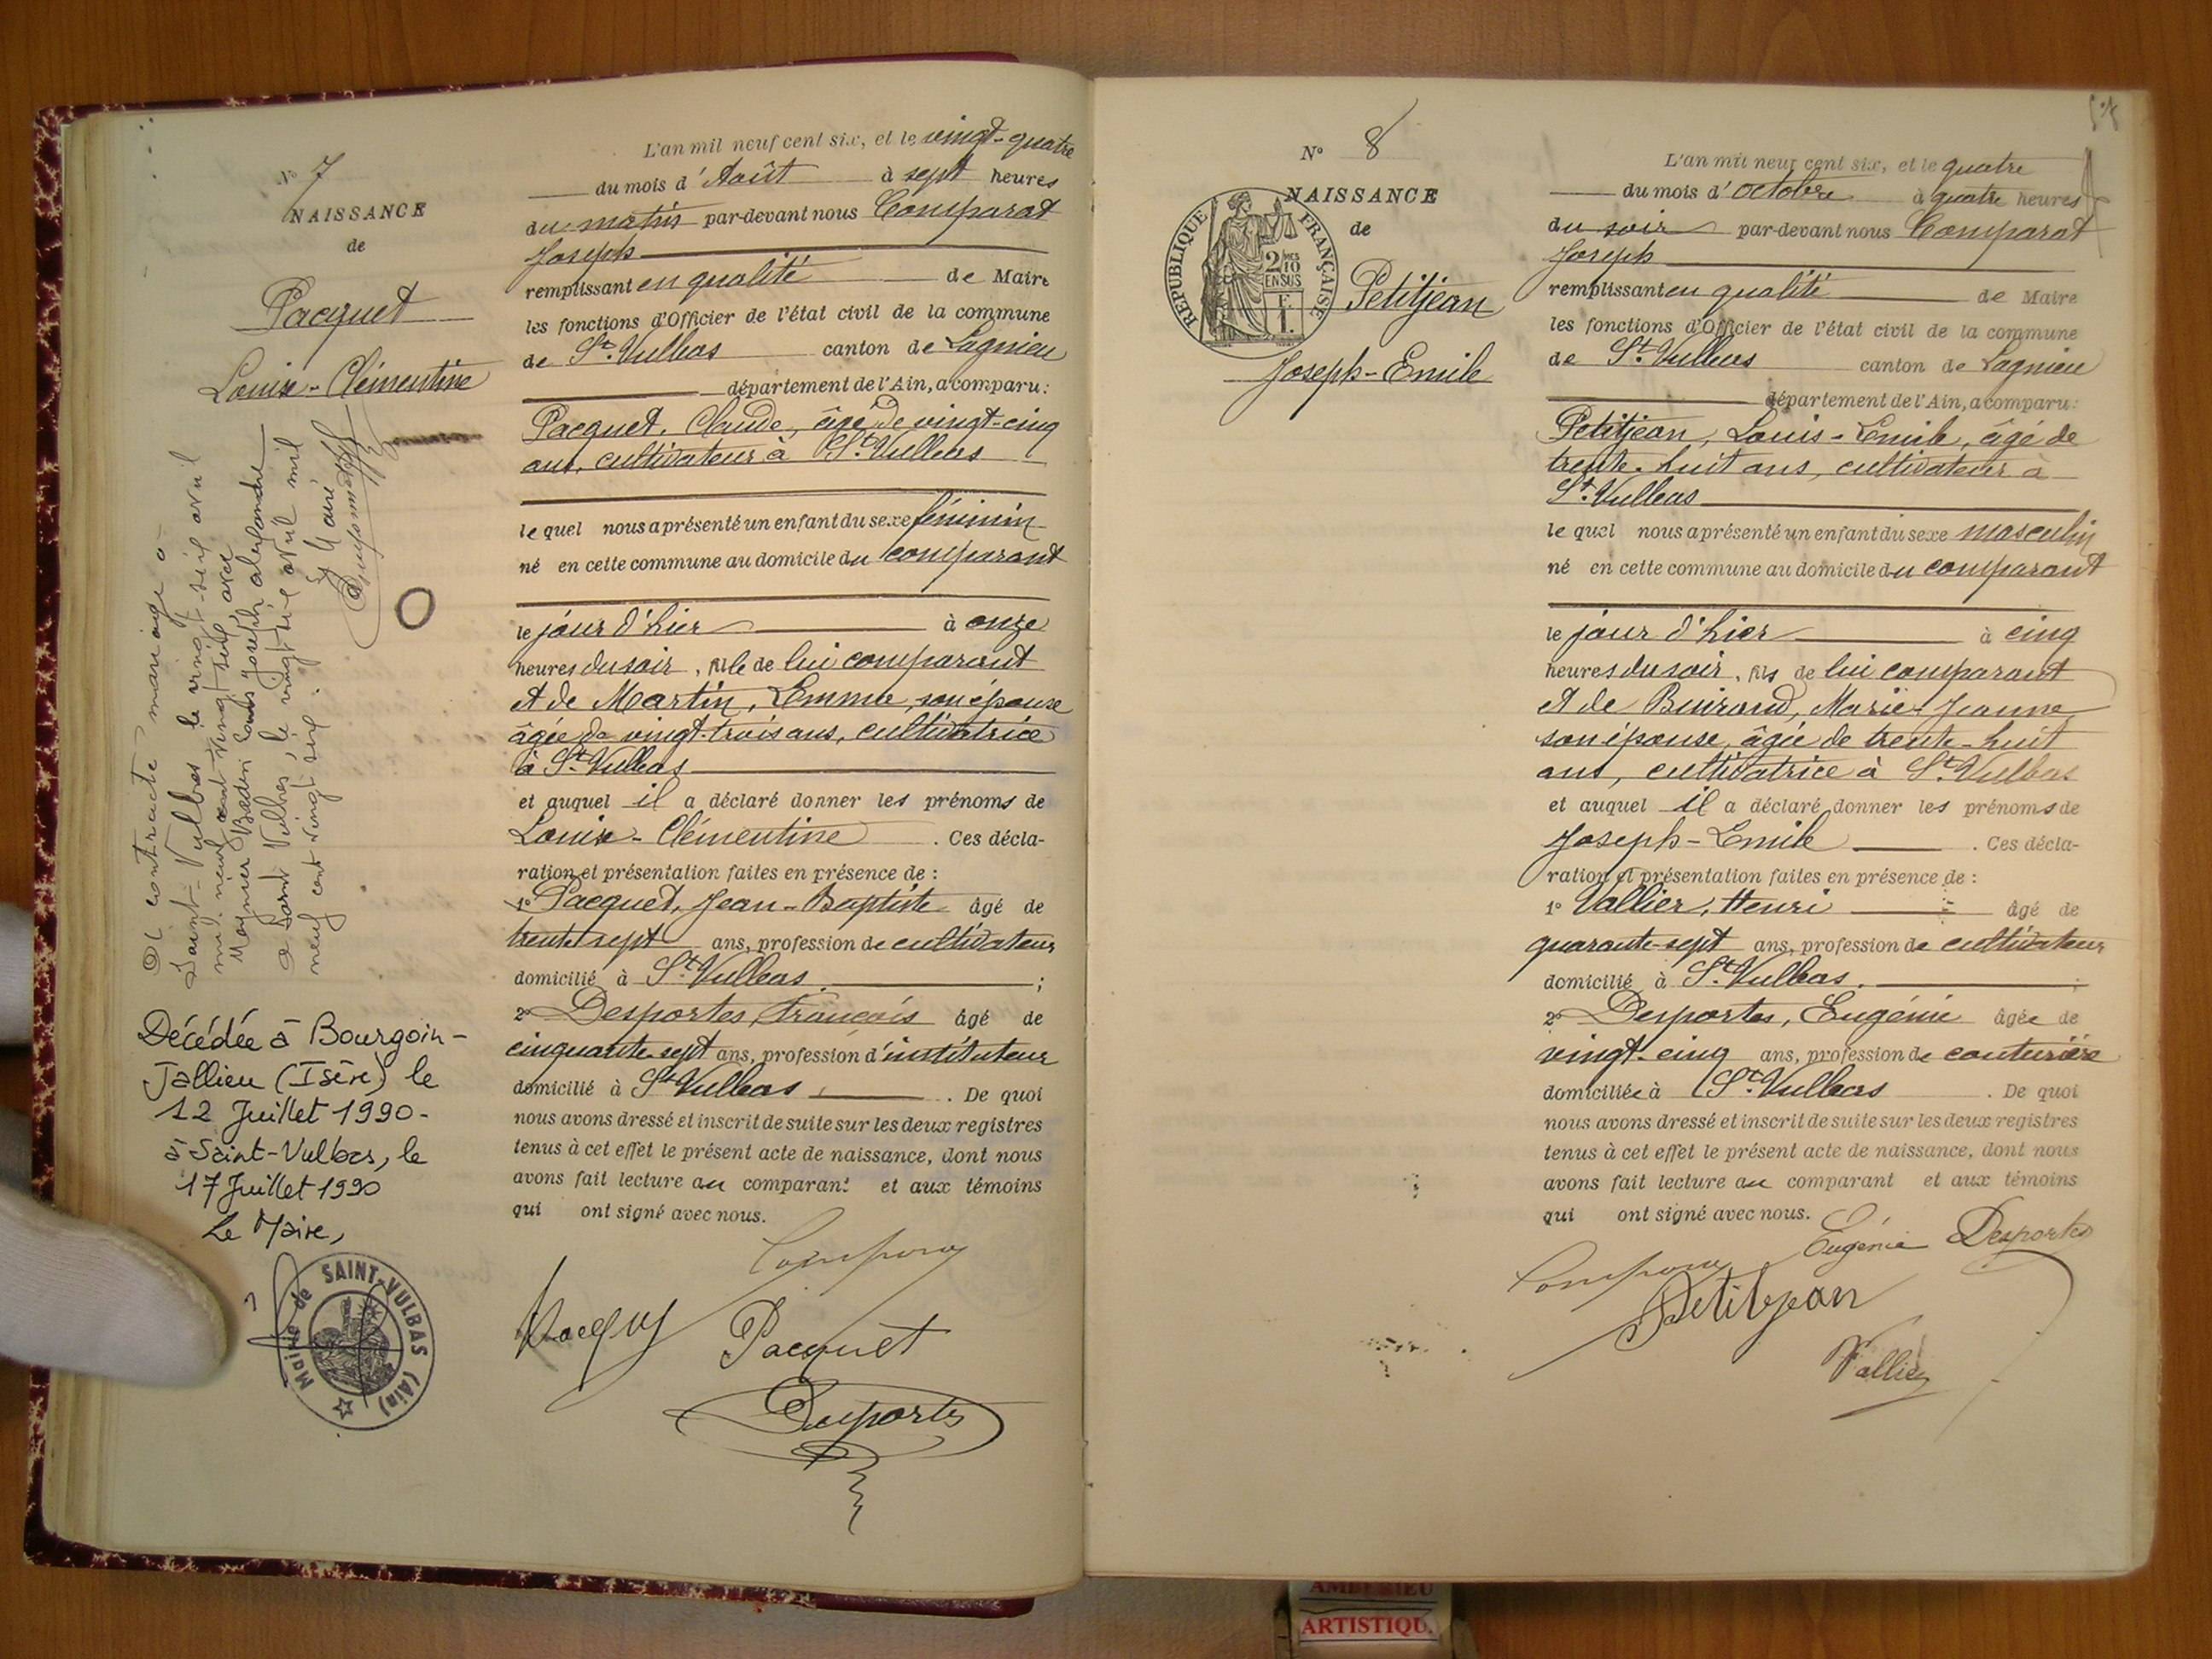 N° 7
NAISSANCE
de
Pacquet
Louise-Clémentine
A contracté mariage à
Saint-Vulbas le vingt-six avril
mil neuf cent vingt six avec
Badin Louis Joseph Alexandre
a Saint Vulbas, le vingt six avril mil
neuf cent vingt six. Le Maire
Décédée à Bourgoin-
Jallieu (Isère) le
12 Juillet 1990-
à Saint-Vulbas, le
17 Juillet 1990
Le Maire,
Mairie de SAINT-VULBAS (Ain)
L'an mil neuf cent six, et le vingt-quatre
du mois d'Août à sept heures
du matin par-devant nous Comparat
Joseph
remplissant en qualité de Maire
les fonctions d'Officier de l'état civil de la commune
de St. Vulbas canton de Lagnieu
département de l'Ain, a comparu:
Pacquet, Claude, âgé de vingt-cinq
ans, cultivateur à St. Vulbas
le quel nous a présenté un enfant du sexe féminin
né en cette commune au domicile du comparant
le jour d'hier à onze
heures du soir, fille de lui comparant
et de Martin, Emma, son épouse
âgée de vingt-trois ans, cultivatrice
à St. Vulbas
et auquel il a déclaré donner les prénoms de
Louise-Clémentine. Ces décla-
ration et présentation faites en présence de :
1° Pacquet, Jean-Baptiste âgé de
trente-sept ans, profession de cultivateur
domicilié à St. Vulbas. ;
2° Desportes, François âgé de
cinquante-sept ans, profession d'instituteur
domicilié à St. Vulbas. De quoi
nous avons dressé et inscrit de suite sur les deux registres
tenus à cet effet le présent acte de naissance, dont nous
avons fait lecture au comparant et aux témoins
qui ont signé avec nous.
Comparat
Pacquet
Pacquet
Desportes
N° 8
NAISSANCE
de
Petitjean
Joseph-Emile
REPUBLIQUE FRANÇAISE
2/10 MES
EN SUS
F
1.
L'an mil neuf cent six, et le quatre
du mois d'octobre à quatre heures
du soir par-devant nous Comparat
Joseph
remplissant en qualité de Maire
les fonctions d'Officier de l'état civil de la commune
de St. Vulbas canton de Lagnieu
département de l'Ain, a comparu:
Petitjean, Louis-Emile, âgé de
trente-huit ans, cultivateur à
St. Vulbas
le quel nous a présenté un enfant du sexe masculin
né en cette commune au domicile du comparant
le jour d'hier à cinq
heures du soir, fils de lui comparant
et de Buirand, Marie-Jeanne
son épouse, âgée de trente-huit
ans, cultivatrice à St. Vulbas
et auquel il a déclaré donner les prénoms de
Joseph-Emile. Ces décla-
ration et présentation faites en présence de :
1° Vallier, Henri âgé de
quarante-sept ans, profession de cultivateur
domicilié à St. Vulbas. ;
2° Desportes, Eugénie âgée de
vingt-cinq ans, profession de couturière
domiciliée à St. Vulbas. De quoi
nous avons dressé et inscrit de suite sur les deux registres
tenus à cet effet le présent acte de naissance, dont nous
avons fait lecture au comparant et aux témoins
qui ont signé avec nous.
Eugénie Desportes
Comparat
Petitjean
Vallier
AMBERIEU
ARTISTIQU